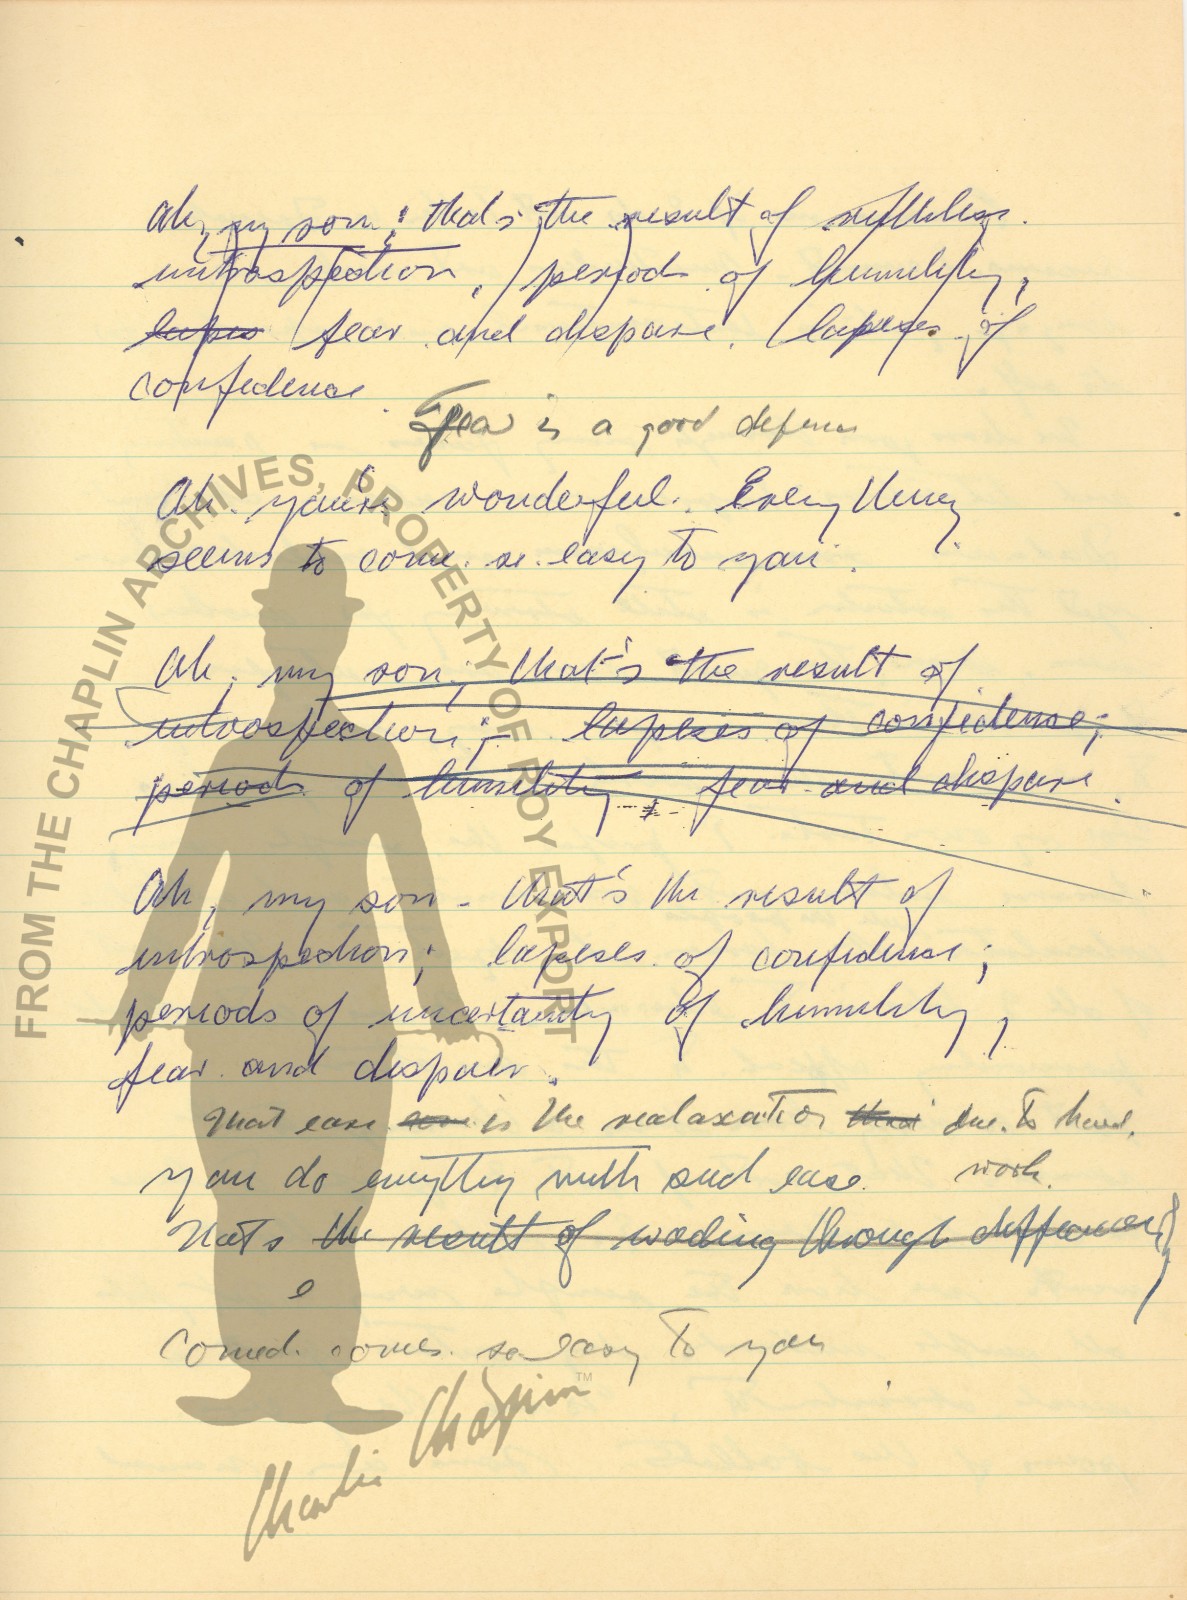 Ah, my son; that's the result of ruthless
introspection, periods of humility,
lapses fear and dispare. lapeses of
confidense.
Fear is a good defense
Ah you're wonderful. Everything
seems to come so easy to you.
Ah, my son, that's the result of
introspection; lapeses of confidense;
periods of humility fear and dispare.
Ah, my son - that's the result of
introspection; lapeses of confidense;
periods of uncertainty of humility,
fear and despair.
That ease is the realaxation that due to hard
work.
you do everything with such ease.
That's the result of wading through
comed. comes so easy to you
FROM THE CHAPLIN ARCHIVES, PROPERTY OF ROY EXPORT
Charlie Chaplin TM